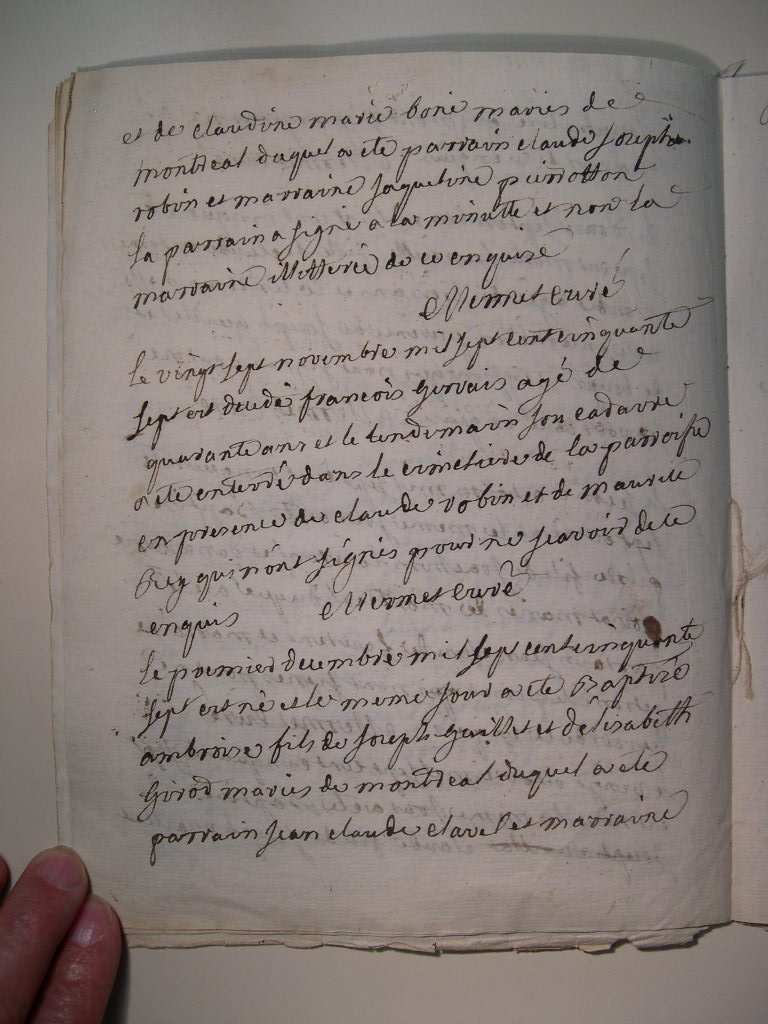 et de claudine marie boné mariés de
montreal duquel a ete parrain claude joseph
robin et marraine jaqueline pierrotton
la parrain a signe a la minutte et non la
marraine illitterée de ce enquise
Mermet curé
le vingt sept novembre mil sept cent cinquante
sept est decedé francois gervais agé de
quarante ans et le lendemain son cadavre
a ete enterré dans le cimetiere de la parroisse
en presence de claude robin et de maurice
Rey qui n'ont signés pour ne scavoir de ce
enquis Mermet curé
le premier decembre mil sept cent cinquante
sept est né et le meme jour a ete Baptizé
ambroise fils de joseph guillet et d'elisabeth
Girod mariés de montreal duquel a ete
parrain jean claude clavel et marraine